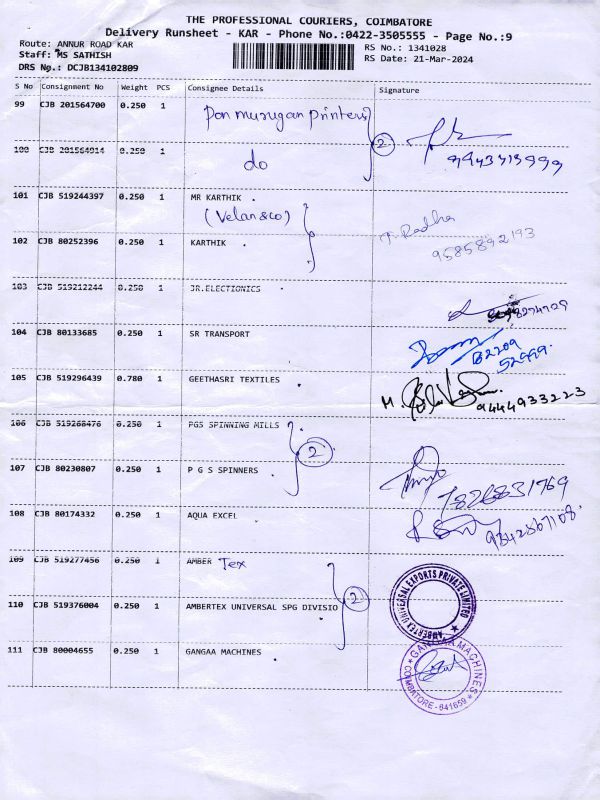 THE PROFESSIONAL COURIERS, COIMBATORE
Delivery Runsheet - KAR - Phone No.:0422-3505555 - Page No.:9
Route: ANNUR ROAD KAR
RS No.: 1341028
Staff: MS SATHISH
RS Date: 21-Mar-2024
DRS No.: DCJB134102809
S No Consignment No Weight PCS Consignee Details Signature
99 CJB 201564700 0.250 1 Pon murugan printers
2
9943713999
100 CJB 201564914 0.250 1 do
101 CJB 519244397 0.250 1 MR KARTHIK .
(Velan & co)
T. Radha
9585892193
102 CJB 80252396 0.250 1 KARTHIK .
103 CJB 519212244 0.250 1 JR.ELECTIONICS
104 CJB 80133685 0.250 1 SR TRANSPORT
82209
52999.
105 CJB 519296439 0.780 1 GEETHASRI TEXTILES
M.
9444933223
106 CJB 519268476 0.250 1 PGS SPINNING MILLS
2
107 CJB 80230807 0.250 1 P G S SPINNERS
7826831769
108 CJB 80174332 0.250 1 AQUA EXCEL
9342867108.
109 CJB 519277456 0.250 1 AMBER Tex
2
110 CJB 519376004 0.250 1 AMBERTEX UNIVERSAL SPG DIVISIO
AMBERTEX UNIVERSAL EXPORTS PRIVATE LIMITED
111 CJB 80004655 0.250 1 GANGAA MACHINES
GANGAA MACHINES
COIMBATORE - 641659